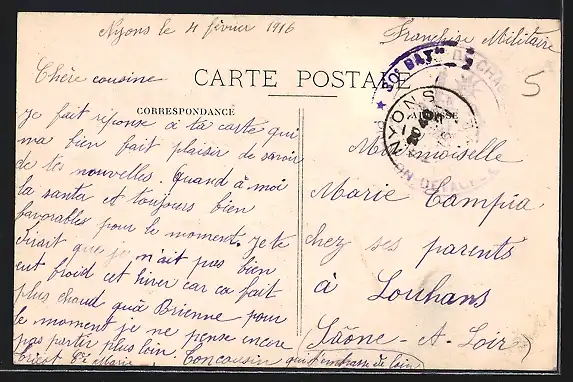 Nyons le 4 février 1916
Franchise Militaire
Chère cousine
CARTE POSTALE
5
CORRESPONDANCE
NYONS
Je fait réponse à ta carte qui
ma bien fait plaisir de savoir
de tes nouvelles. Quand à moi
la santer et toujours bien
favorables pour le moment. Je te
dirait que je n'ait pas bien
eut froid cet hiver car ca fait
plus chaud qu'à Brienne pour
le moment je ne pense encore
pas partir plus loin. Ton cousin qui t'embrasse de loin
Mademoiselle
Marie Campia
chez ses parents
à Louhans
(Saône-A-Loir)